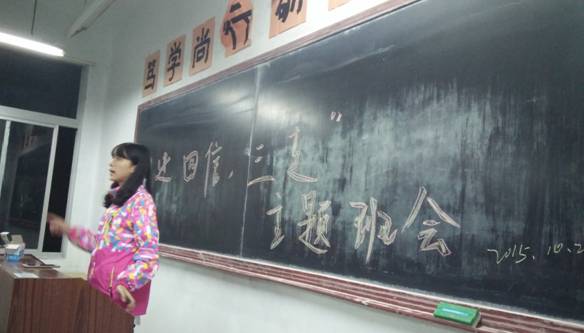 笃学尚行
回信,三走"
主题班会
2015.10.2